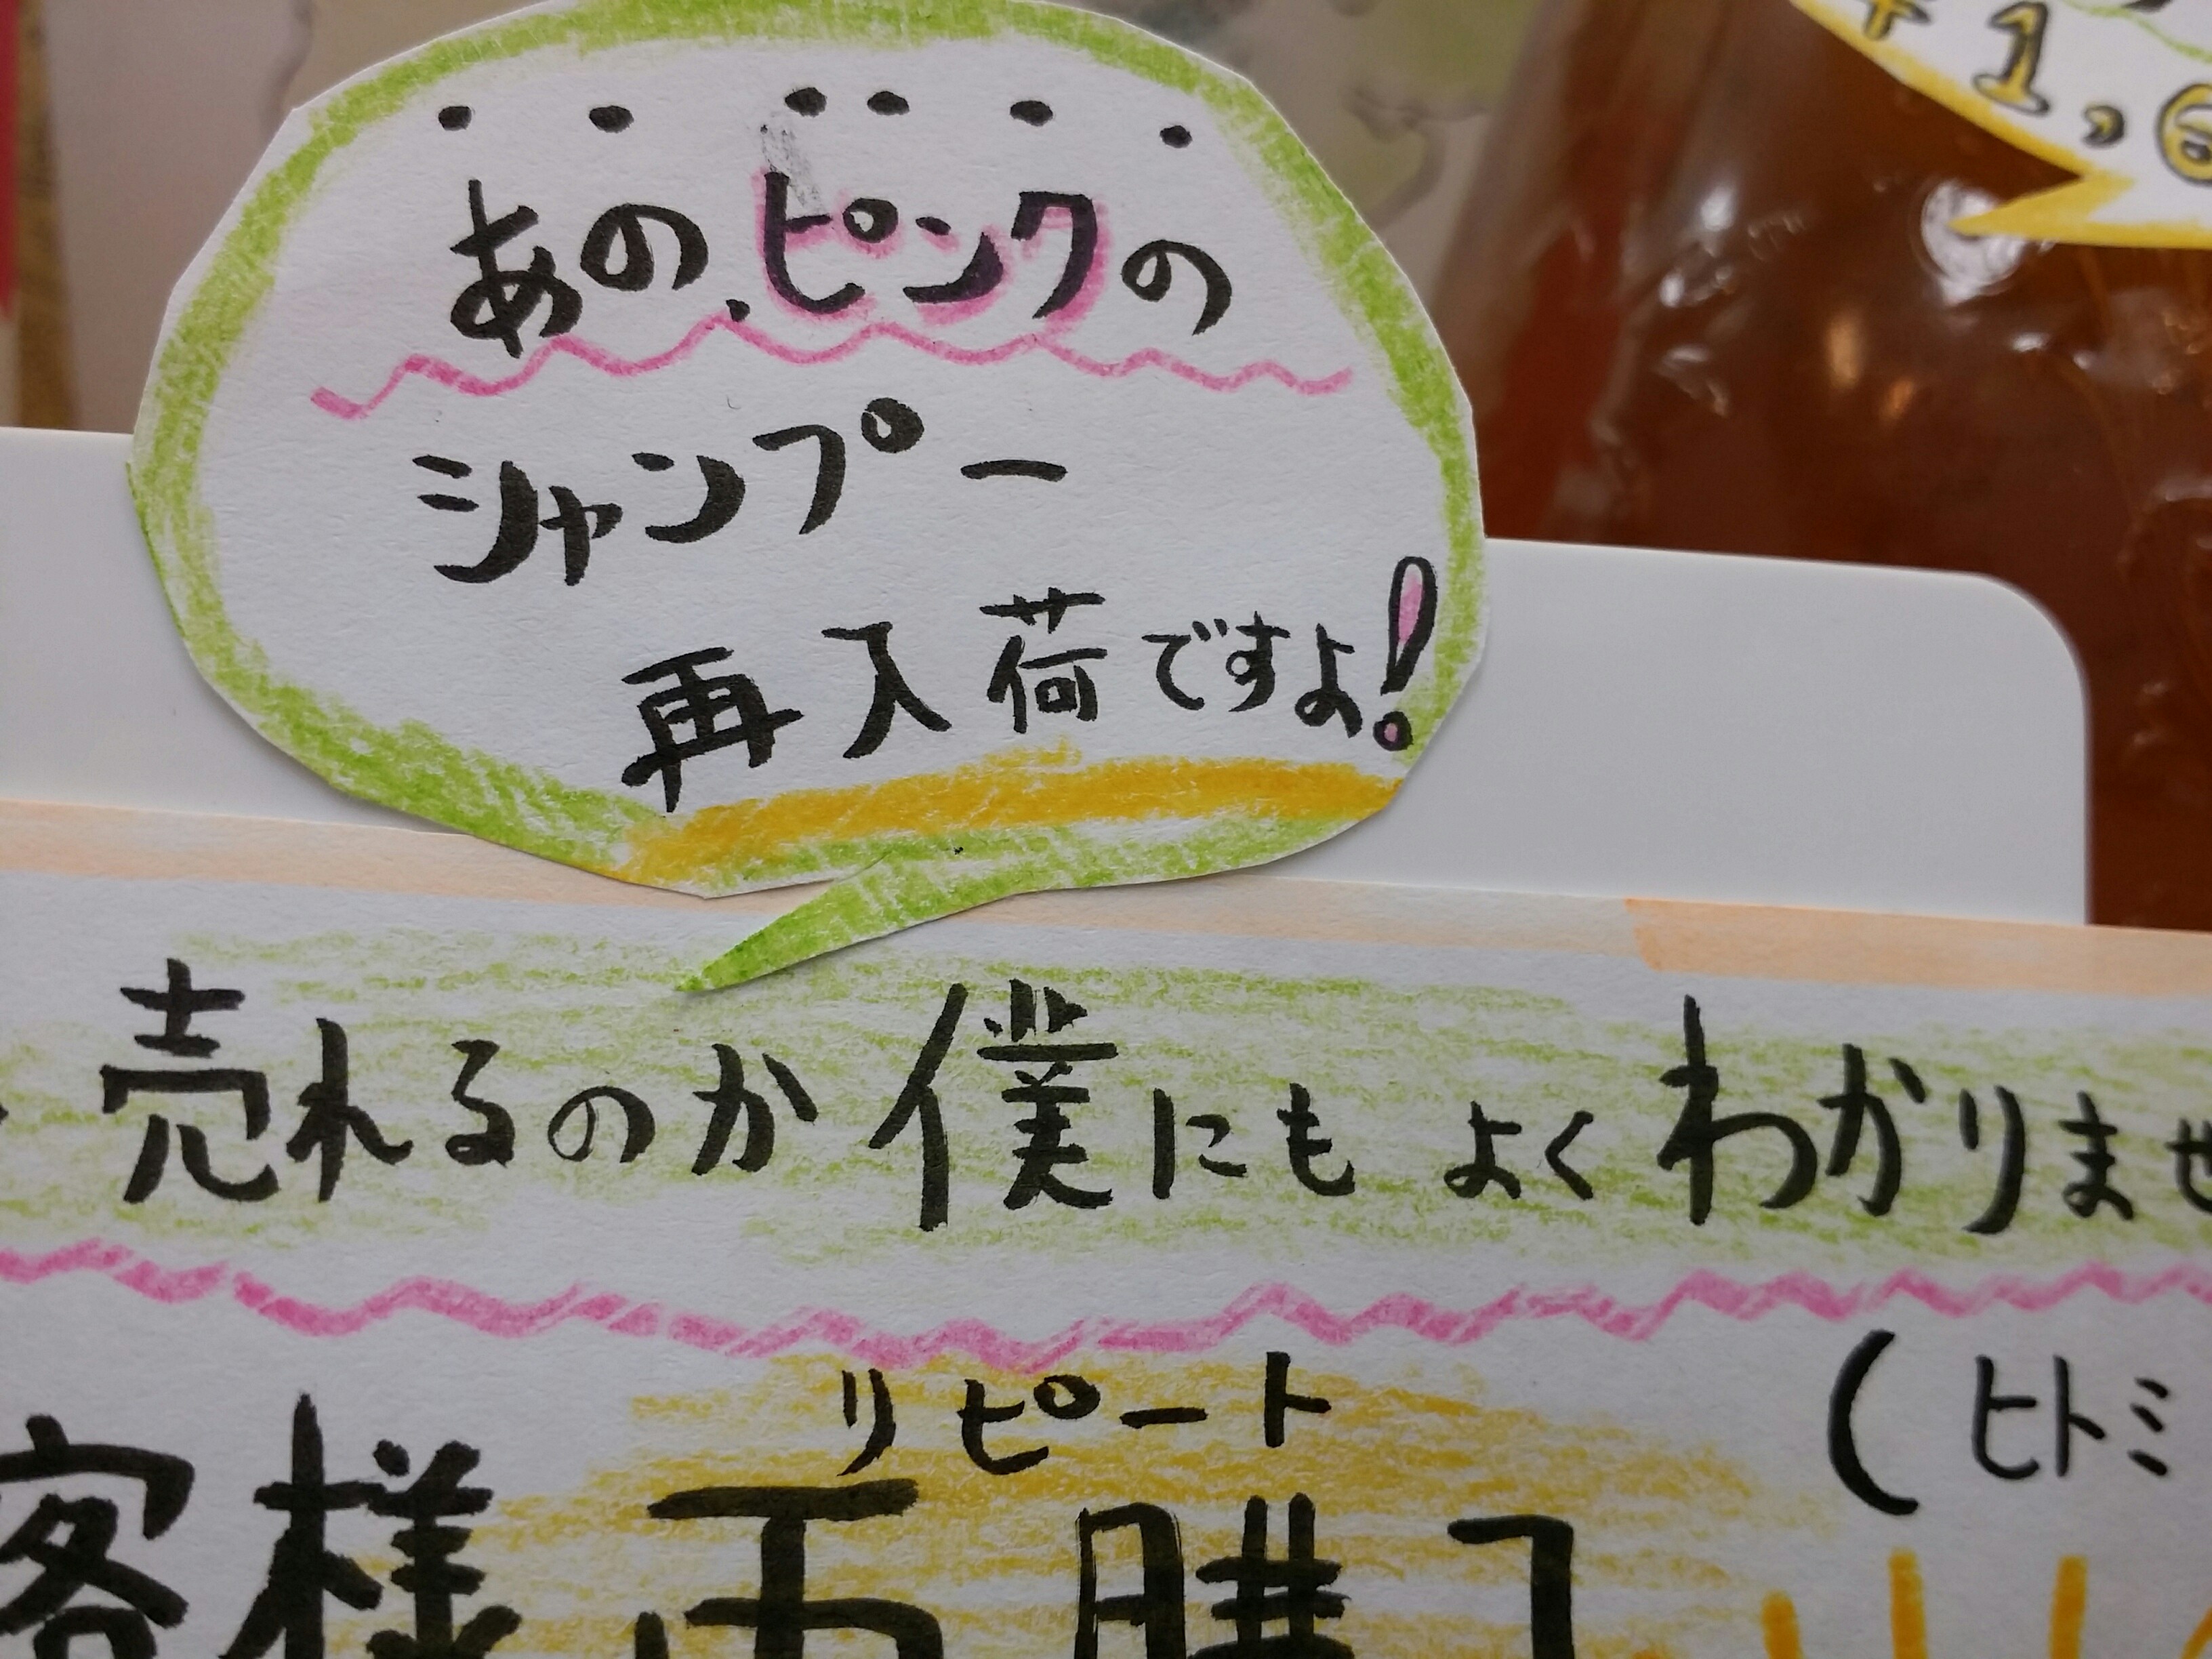 ¥1,
あのピンクの
シャンプー
再入荷ですよ!
売れるのか僕にもよくわかりませ
(ヒトミ
リピート
客様再購入